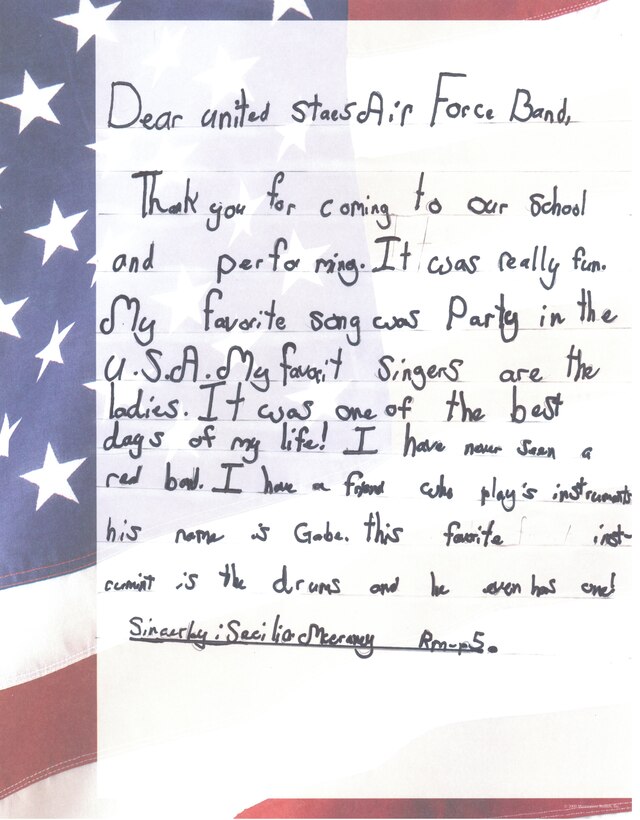 Dear united staes Air Force Band,
Thank you for coming to our school
and performing. It was really fun.
My favorite song was Party in the
U.S.A. My favorit singers are the
ladies. It was one of the best
days of my life! I have never seen a
real band. I have a friend who play's instruments
his name is Gabe. this favorite inst-
rumint is the drums and he even has one!
Sincerly: Secilia Rm-p5.